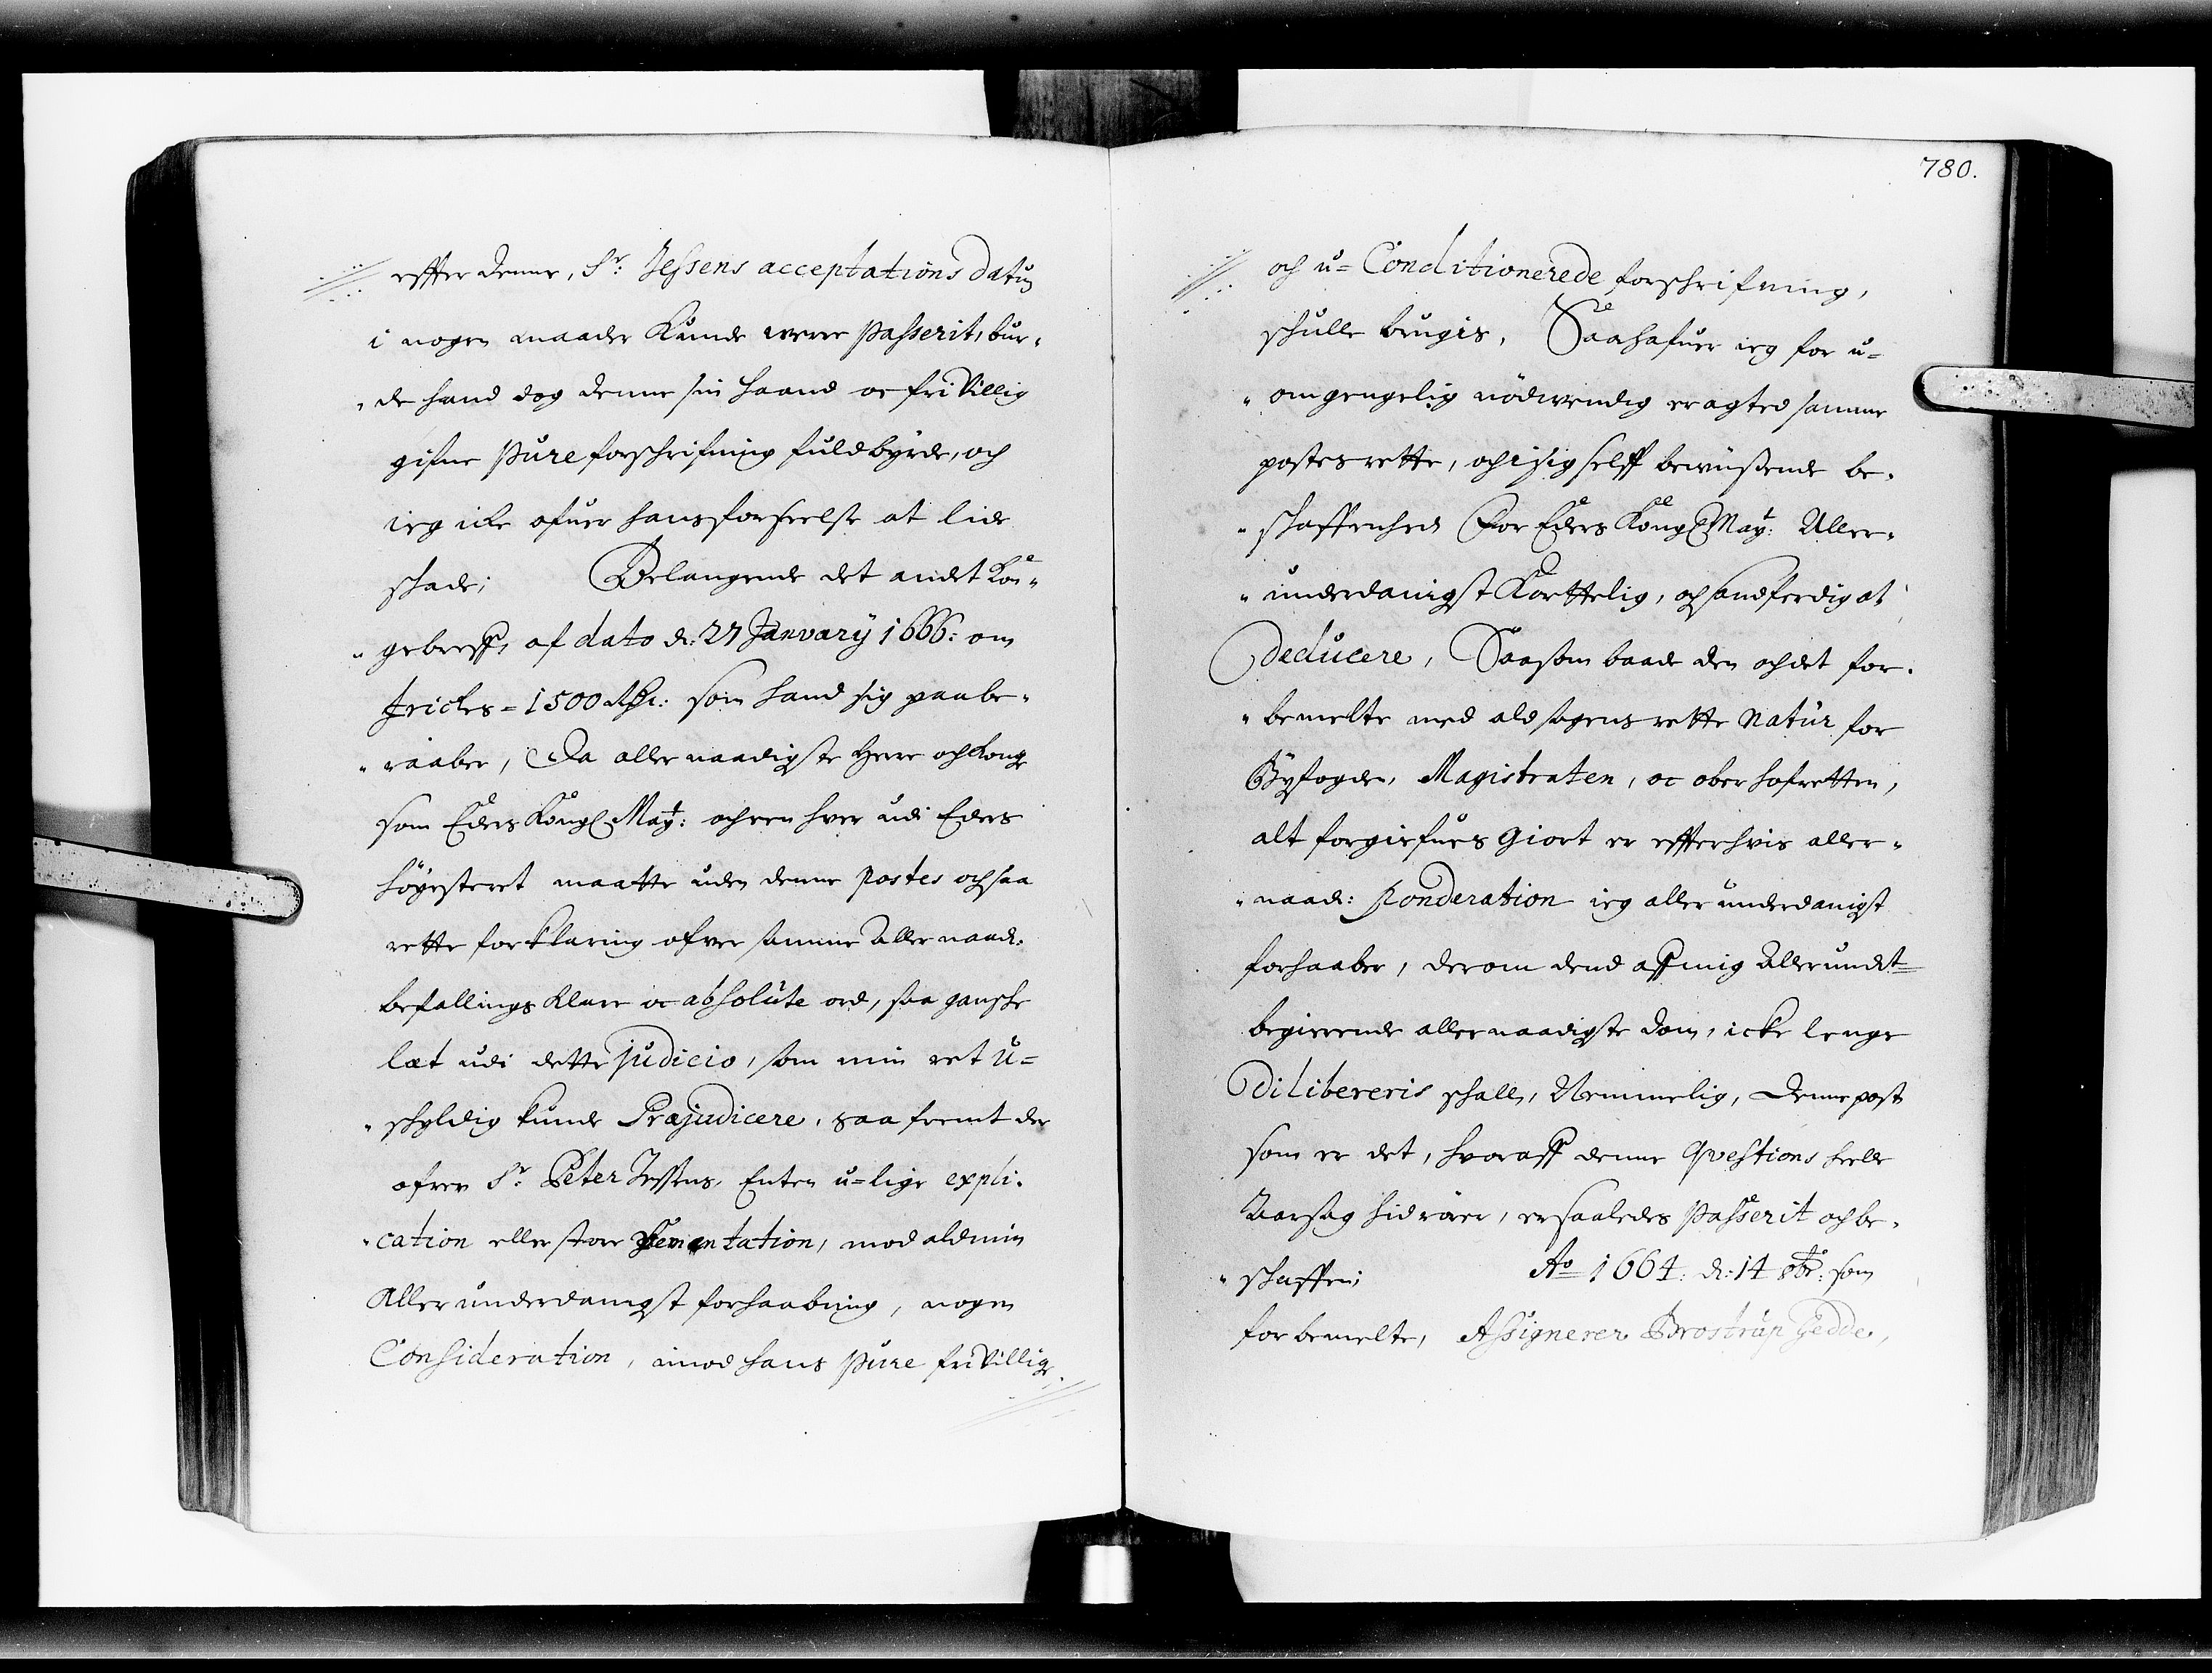 effter denne, Sr: Jessens acceptations datum
i nogen maader kunde were passerit, bur-
de hand dog denne sin haand oc fri villig
gifne pure forschrifning fuldbyrde, och
ieg icke ofuer hans forseelse at lide
schade; Belangende det andet Kon-
gebreff, af dato d: 27 January 1666: om
Frickes = 1500 Rdr: som hand sig paabe-
raaber, Da aller naadigste Herre och Kong
som Eders Kongl May: och een hver udi Eders
höyesteret maatte uden denne postes och saa
rette forklaring ofver samme Aller naad:
befallings klare oc absolute ord, saa gansche
læt udi dette judicio, som min ret u-
schyldig kunde Præjudicere, saa fremt der
ofver Sr: Peter Jessens, Enten u-lige expli-
cation eller store mod ald min
Aller underdanigst forhaabning, nogen
Consideration, imod hans pure fri villige
780.
och u= Conditionerede forschrifning,
schulle brugis, Saa hafuer ieg for u-
omgengelig nödwendig eragted samme
postes rette, och i sig selff bewüsende be-
schaffenhed For Eders Kongl May: Aller-
underdanigst Korttelig, och sandferdig at
Deducere, Saasom baade den och det for-
bemelte med ald sagens rette natur for
Byfogden, Magistraten, oc ober hofretten,
alt forgiefues giort er effterhvis aller-
naad: Ponderation ieg aller underdanigst
forhaaber, derom dend aff mig Allerundt=
begierende aller naadigste dom, icke lenge
Dilibereris schall, Nemmelig, Denne post
som er det, hvoraff denne Qvestions heele
Aarsag hid rörer, er saaledes passerit och be-
schaffen; Ao 1664: d: 14 8br: som
for bemelte, Assignerer Brostrup Gedde,